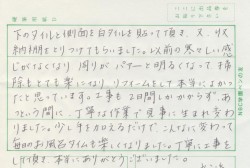 下のタイルと側面を白タイルを貼って頂き、又、収
納棚をとりつけてもらいました。以前の寒々しい感
じがなくなり、周りがパァーと明るくなって掃
除もとても楽になり、リフォームして本当によかっ
たと思っています。工事も2日間しかかからず、あっ
という間に、丁寧な作業で見事に生まれ変
わりました。少し手を加えるだけで、こんなに変わって
毎日お風呂タイムを楽しくなりました。丁寧に工事を
して頂き、本当にありがとうございました。